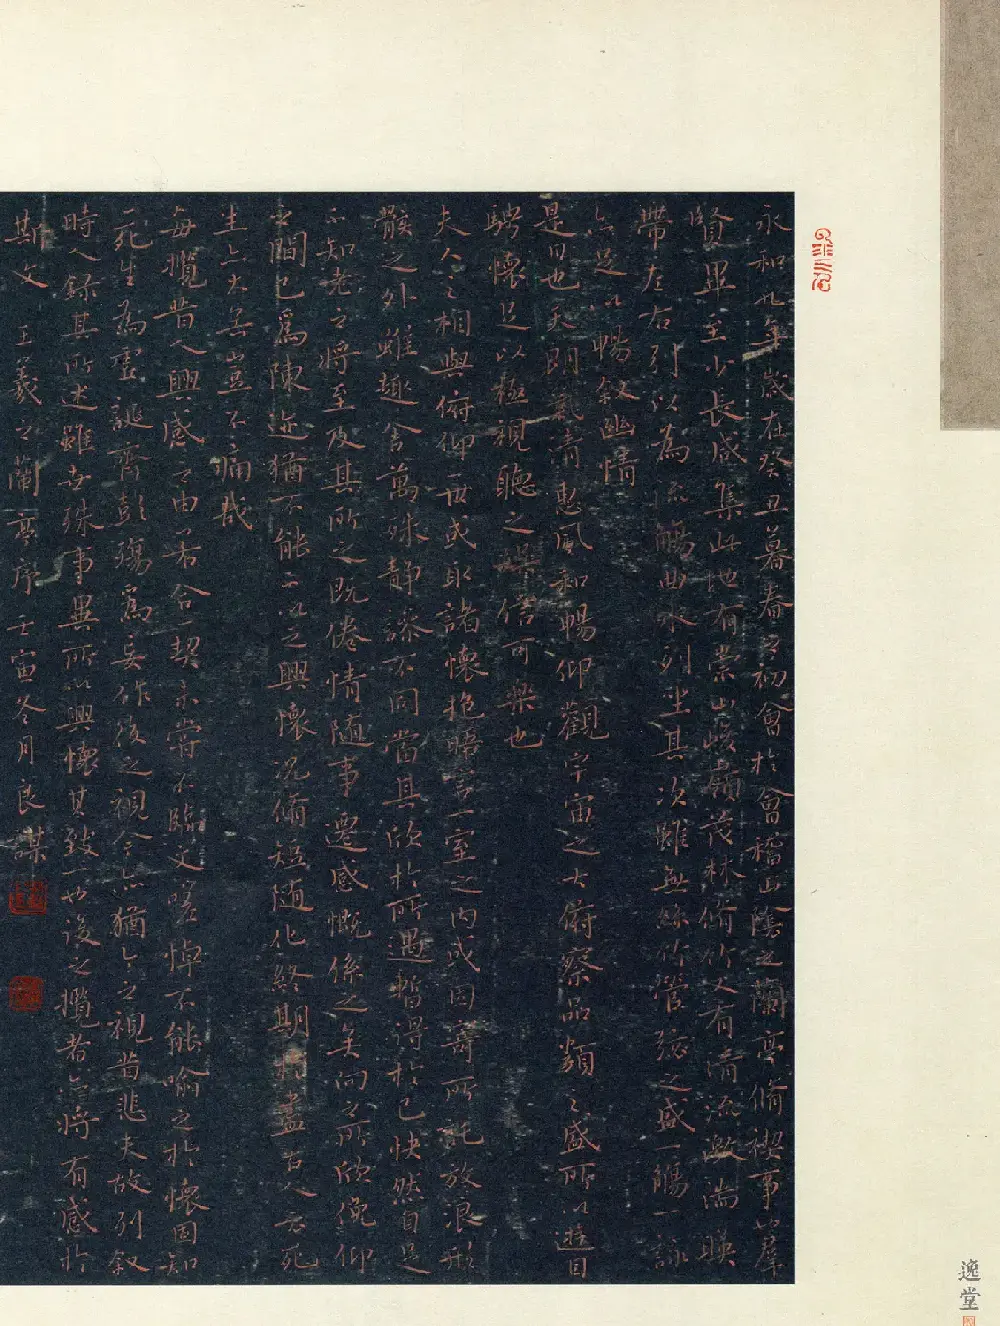 永和九年歲在癸丑暮春之初會於會稽山陰之蘭亭脩禊事也羣
賢畢至少長咸集此地有崇山峻領茂林脩竹又有清流激湍映
帶左右引以為流觴曲水列坐其次雖無絲竹管弦之盛一觴一詠
亦足以暢敘幽情
是日也天朗氣清惠風和暢仰觀宇宙之大俯察品類之盛所以遊目
騁懷足以極視聽之娛信可樂也
夫人之相與俯仰一世或取諸懷抱晤言一室之內或因寄所託放浪形
骸之外雖趣舍萬殊靜躁不同當其欣於所遇暫得於己快然自足
不知老之將至及其所之既倦情隨事遷感慨係之矣向之所欣俛仰
之間已為陳迹猶不能不以之興懷況脩短隨化終期於盡古人云死
生亦大矣豈不痛哉
每攬昔人興感之由若合一契未嘗不臨文嗟悼不能喻之於懷固知
死生為虛誕齊彭殤為妄作後之視今亦猶今之視昔悲夫故列敘
時人錄其所述雖世殊事異所以興懷其致一也後之攬者亦將有感於
斯文 王羲之蘭亭序 壬寅冬月良謀
逸堂